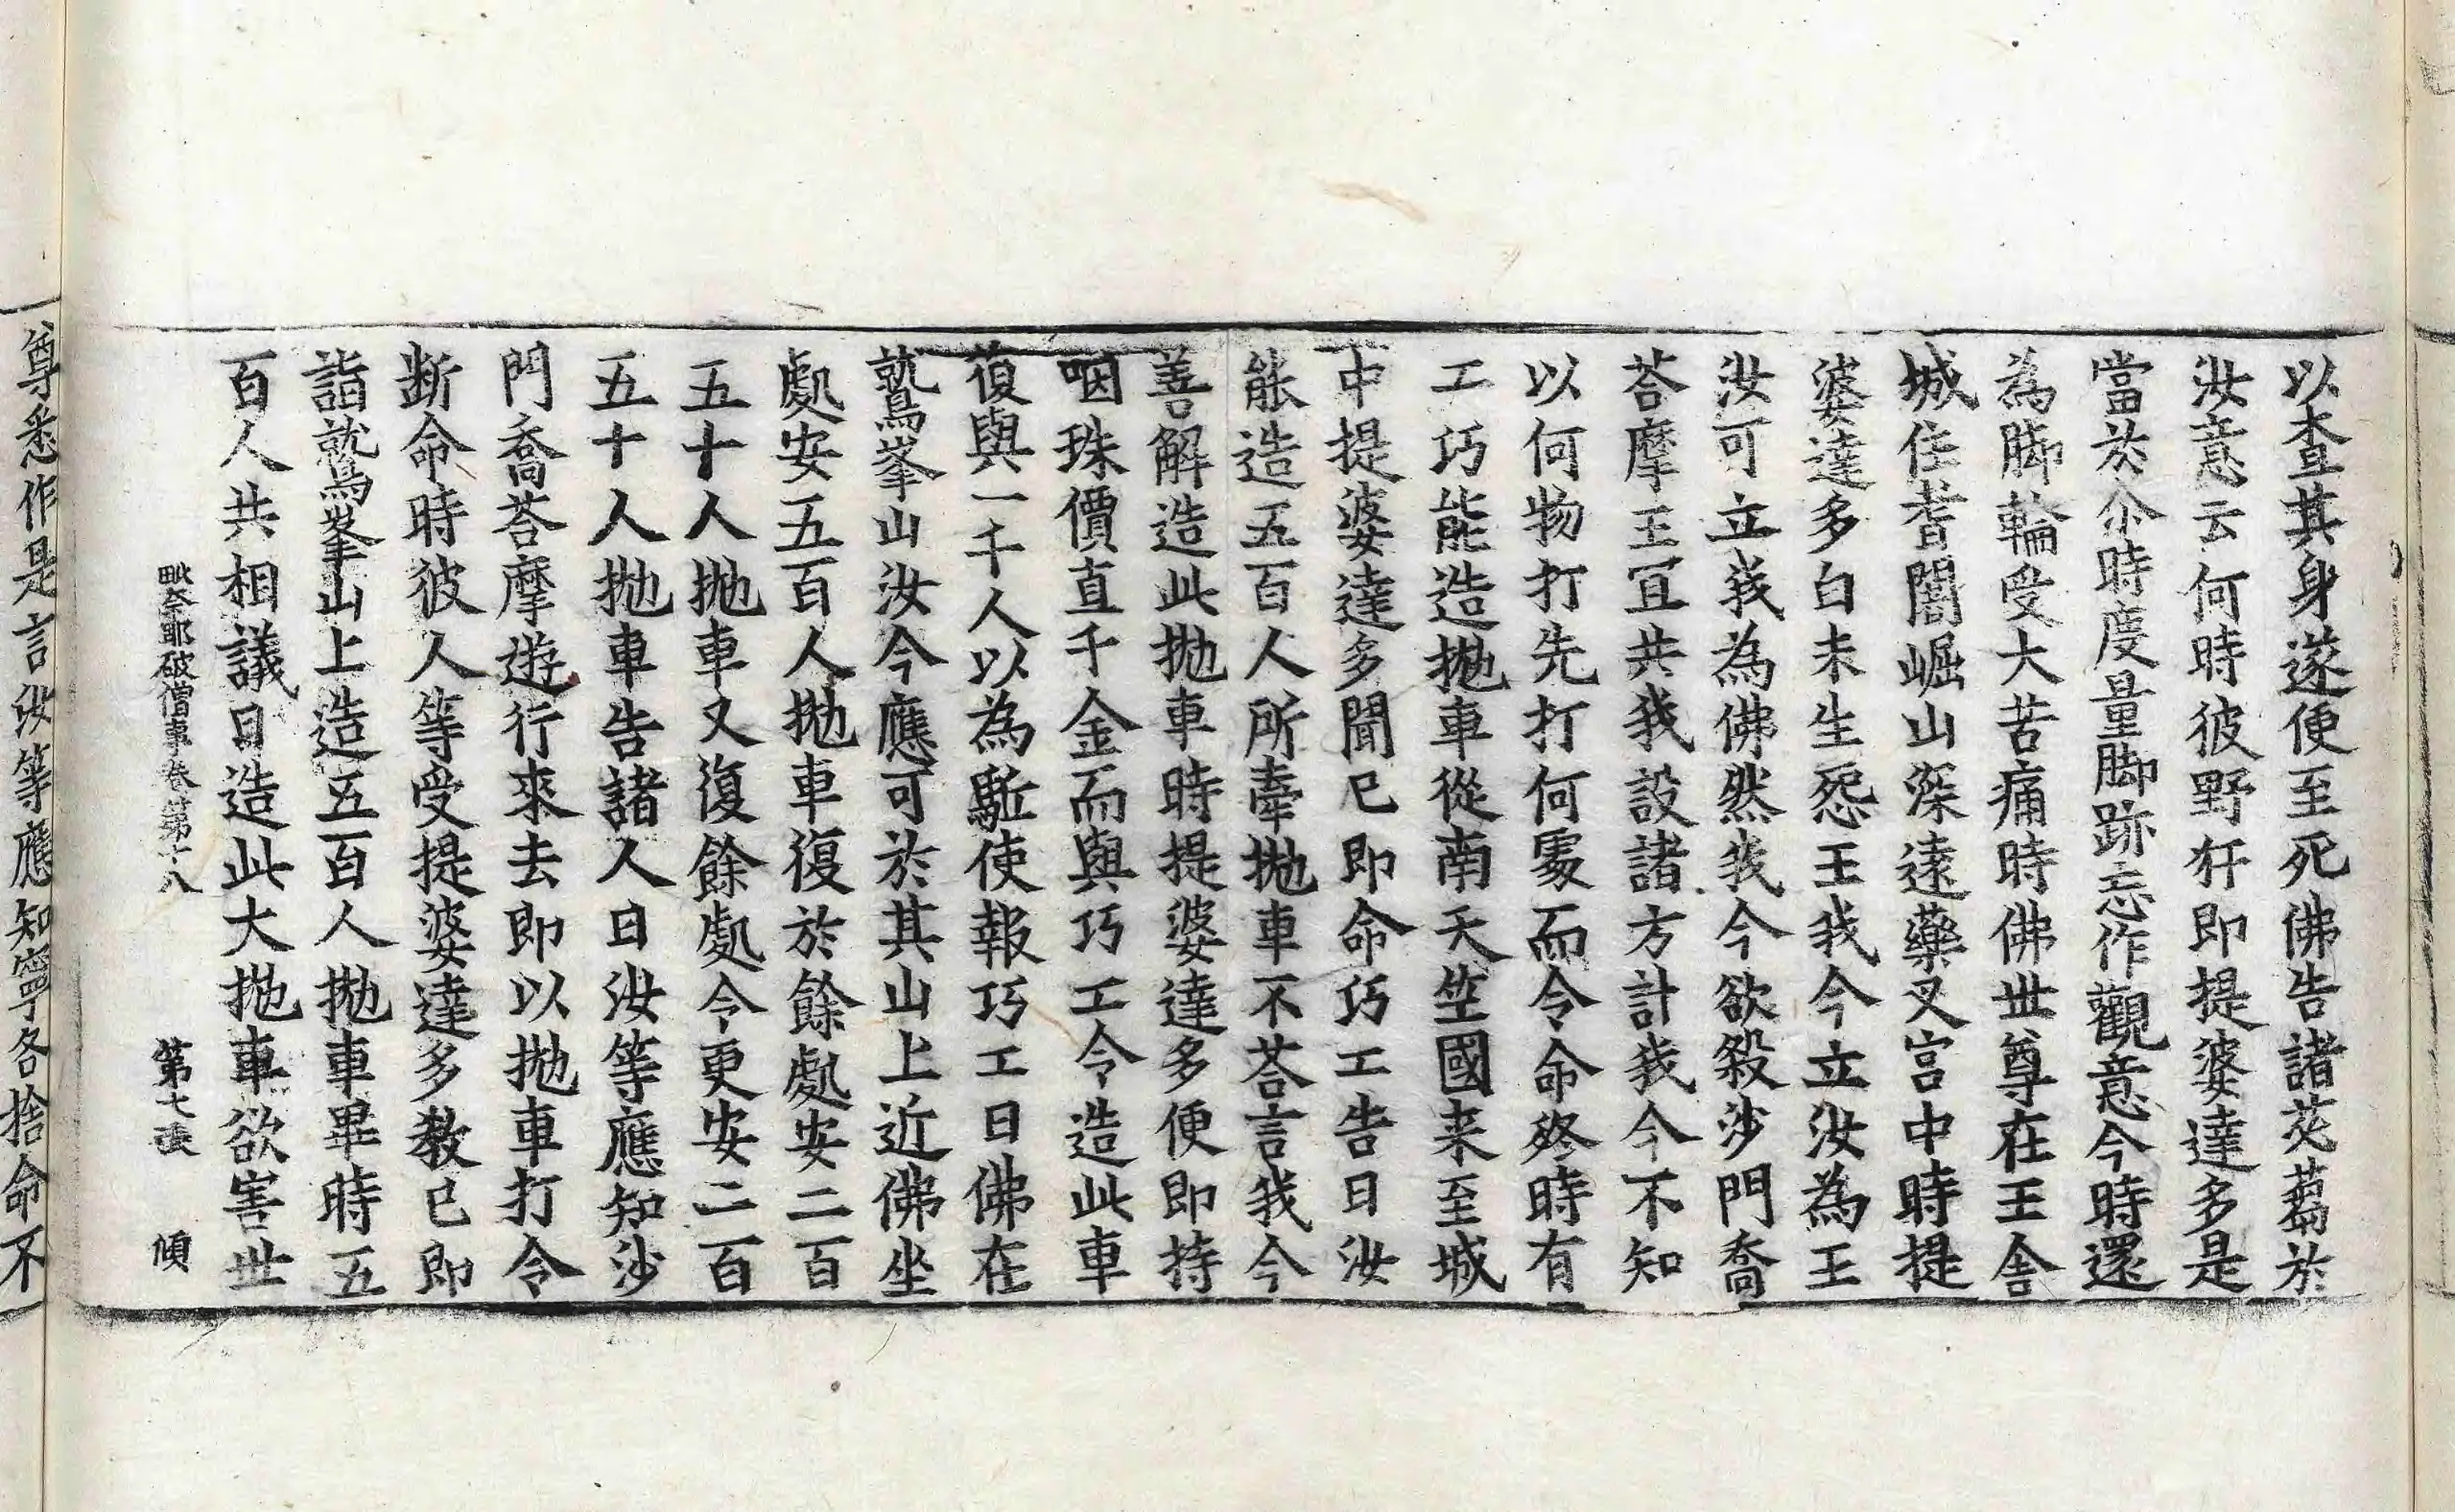 以查其身遂便至死佛告諸苾蒭於
汝意云何時彼野犴即提婆達多是
當於尒時度量脚跡忘作觀意今時還
為脚輪受大苦痛時佛世尊在王舍
城住耆闍崛山深遠藥叉宫中時提
婆達多白未生怨王我今立汝為王
汝可立我為佛然我今欲殺沙門喬
荅摩王冝共我設諸方計我今不知
以何物打先打何處而令命終時有
工巧能造抛車從南天竺國来至城
中提婆達多聞已即命巧工告曰汝
能造五百人所牽抛車不荅言我今
善解造此抛車時提婆達多便即持
咽珠價直千金而與巧工令造此車
復與一千人以為駈使報巧工曰佛在
鷲峯山汝今應可於其山上近佛坐
處安五百人抛車復於餘處安二百
五十人抛車又復餘處令更安二百
五十人抛車告諸人曰汝等應知沙
門喬荅摩遊行來去即以抛車打令
断命時彼人等受提婆達多教已即
詣鷲峯山上造五百人抛車畢時五
百人共相議曰造此大抛車欲害世
毗奈耶破僧事卷第十八 第七張 傾
尊悉作是言汝等應知寧各捨命不